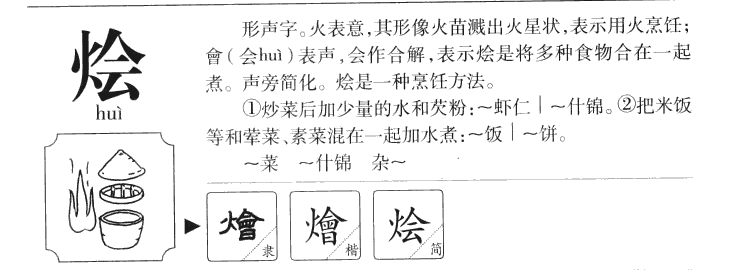 烩
huì
形声字。火表意，其形像火苗溅出火星状，表示用火烹饪；
會（会huì）表声，会作合解，表示烩是将多种食物合在一起
煮。声旁简化。烩是一种烹饪方法。
①炒菜后加少量的水和芡粉：～虾仁｜～什锦。②把米饭
等和荤菜、素菜混在一起加水煮：～饭｜～饼。
～菜　～什锦　杂～
燴 隶 燴 楷 烩 简